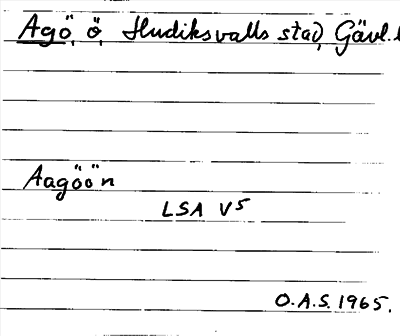 Agö, ö, Hudiksvalls stad, Gävl.
Aagöön
LSA V5
O.A.S. 1965.